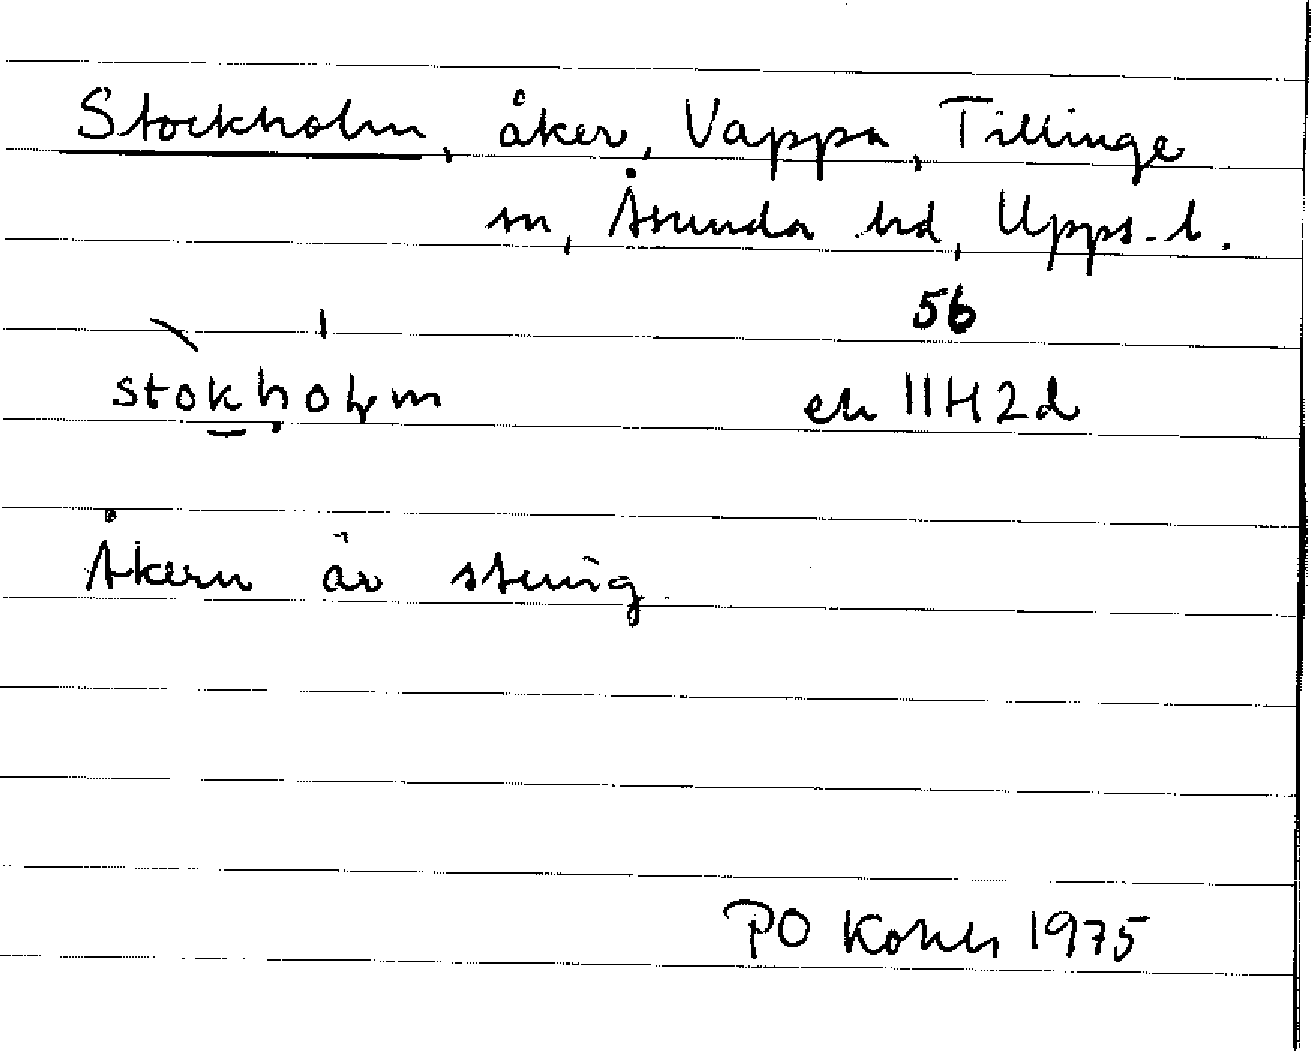 Stockholm, åker, Vappa, Tillinge
sn, Åsunda hd, Upps. l.
56
stokholm
ek 11H2d
Åkern är stenig
PO 1975